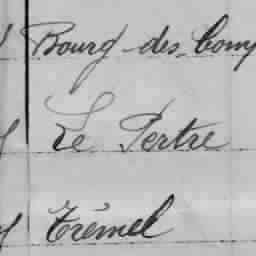 Bourg-des-Comp
Le Pertre
Trémel